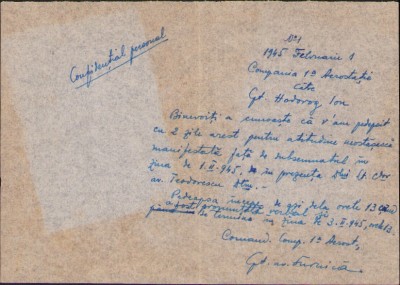 Confidențial personal
No 1
1945 Februarie 1
Compania 1a Aerostație
Către
Gt. Hodorog Ion
Binevoiți a cunoaste că v'am pedepsit
cu 2 zile arest pentru atitudine
manifestată față de subsemnatul în
ziua de 1.II.945, în prezența Dlui Lt. Cdor
av. Teodorescu
Pedeapsa începe de azi dela orele 13 când
a fost pronunțată verbal și
se termina in ziua de 3.II.945, orele 13.
Comand. Comp. 1a Aerost,